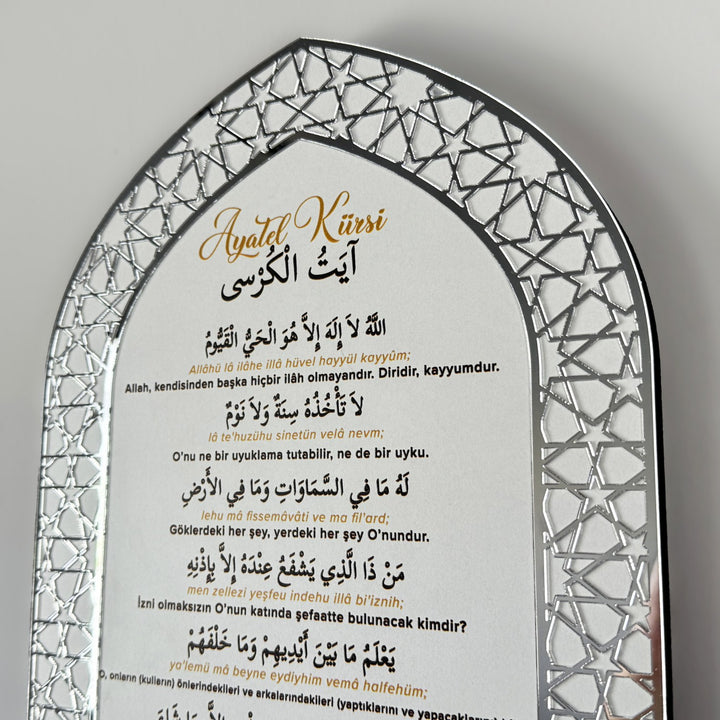 Ayatel Kürsi
آيَتُ الْكُرْسى
اللَّهُ لاَ إِلَهَ إِلاَّ هُوَ الْحَيُّ الْقَيُّومُ
Allâhü lâ ilâhe illâ hüvel hayyül kayyûm;
Allah, kendisinden başka hiçbir ilâh olmayandır. Diridir, kayyumdur.
لاَ تَأْخُذُهُ سِنَةٌ وَلاَ نَوْمٌ
lâ te'huzühu sinetün velâ nevm;
O'nu ne bir uyuklama tutabilir, ne de bir uyku.
لَهُ مَا فِي السَّمَاوَاتِ وَمَا فِي الأَرْضِ
lehu mâ fissemâvâti ve ma fil'ard;
Göklerdeki her şey, yerdeki her şey O'nundur.
مَنْ ذَا الَّذِي يَشْفَعُ عِنْدَهُ إِلاَّ بِإِذْنِهِ
men zellezi yeşfeu indehu illâ bi'iznih;
İzni olmaksızın O'nun katında şefaatte bulunacak kimdir?
يَعْلَمُ مَا بَيْنَ أَيْدِيهِمْ وَمَا خَلْفَهُمْ
ya'lemü mâ beyne eydiyhim vemâ halfehüm;
O, onların (kulların) önlerindekileri ve arkalarındakileri (yaptıklarını ve yapacaklarını)